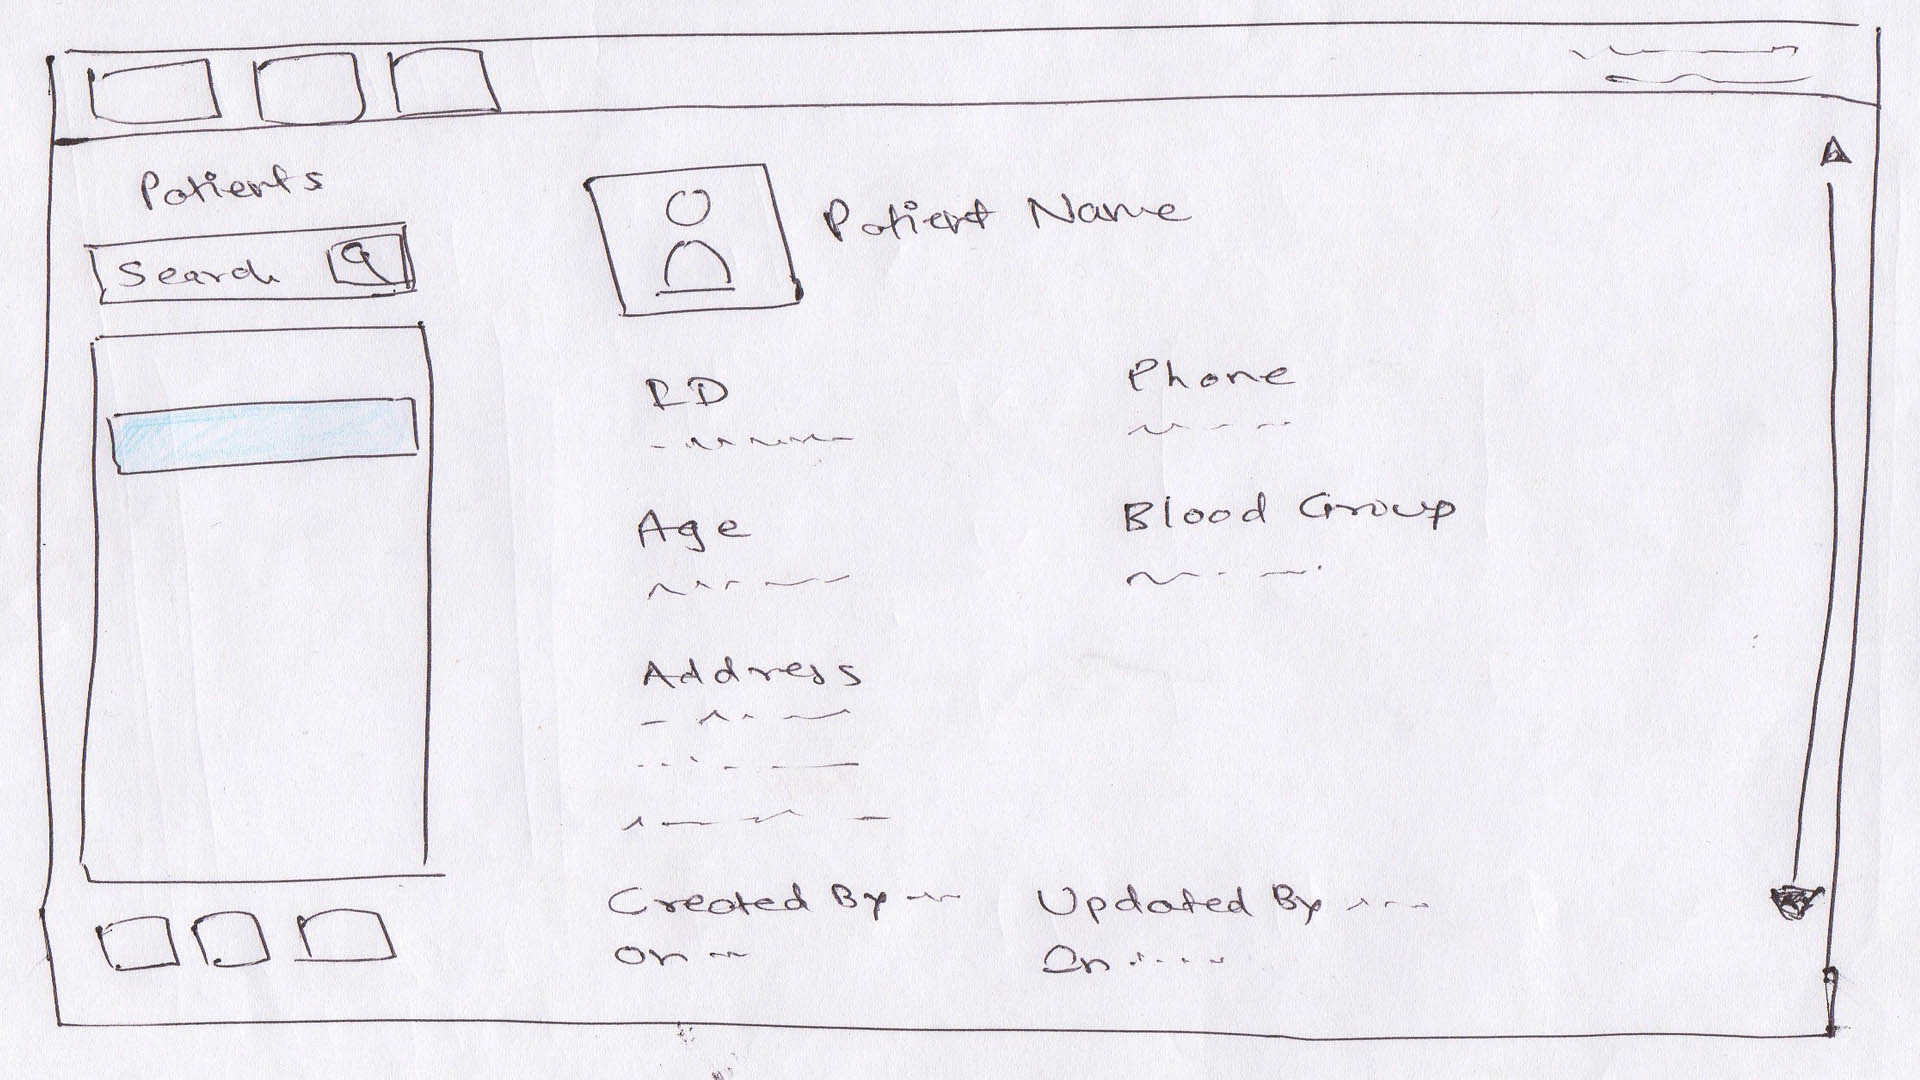 Patients
Search
Patient Name
ID
Phone
Age
Blood Group
Address
Created By
On
Updated By
On